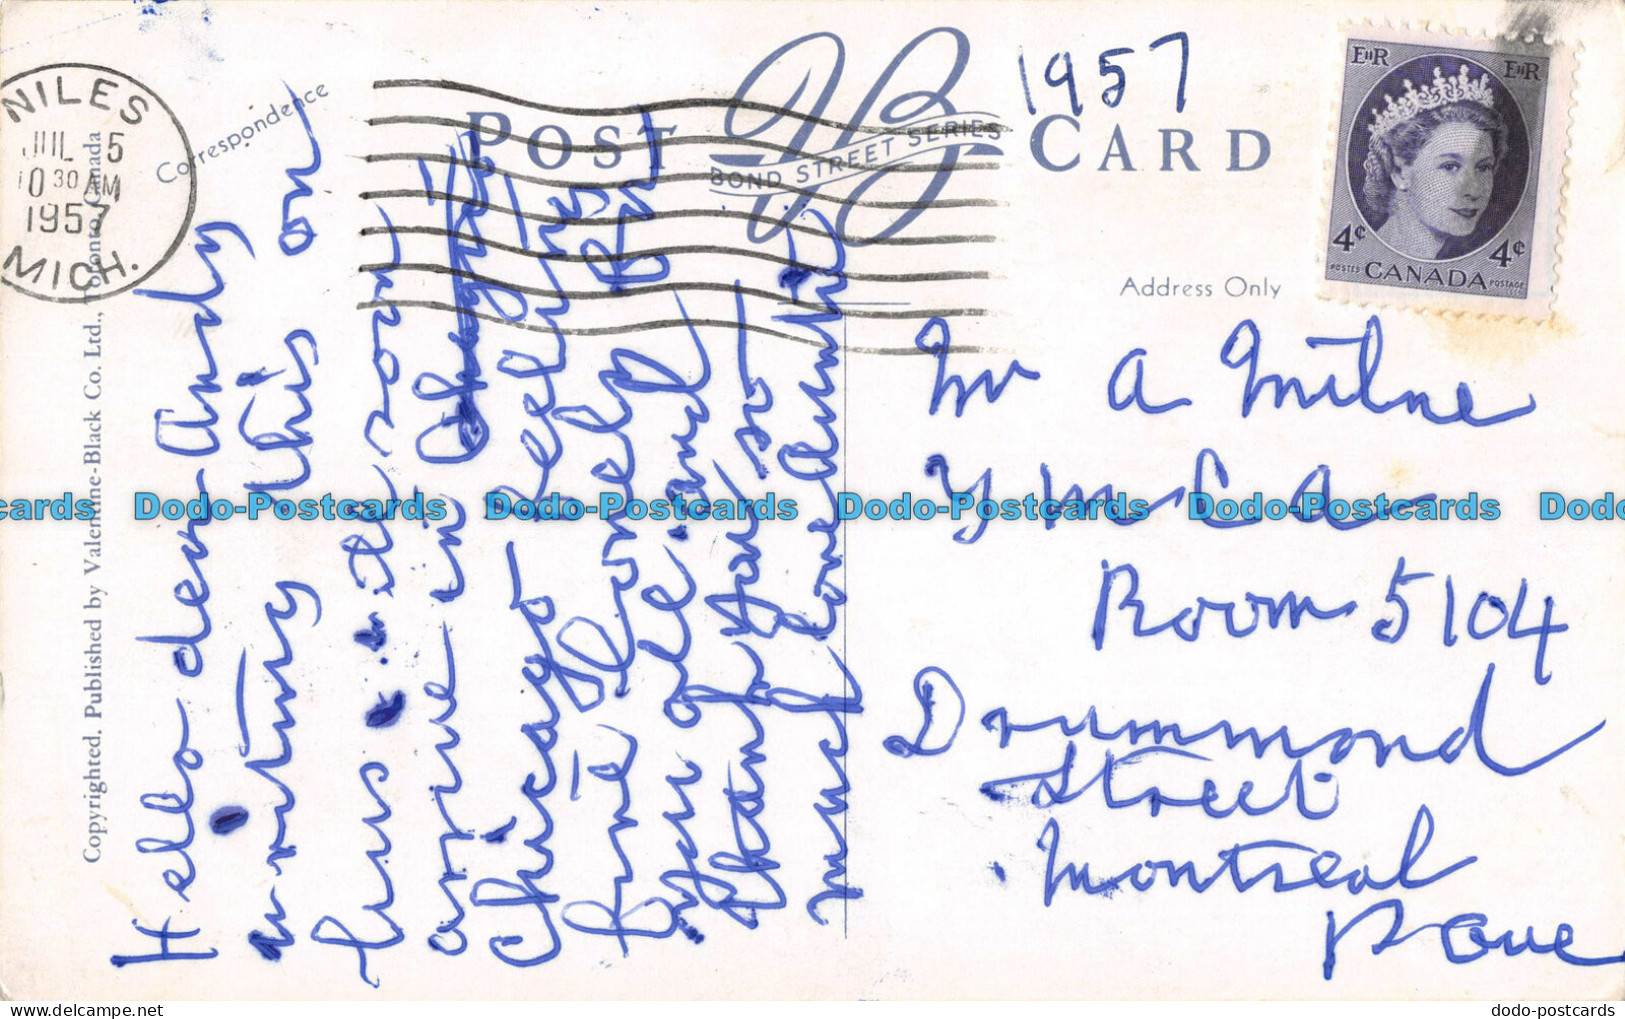 NILES
JUL 5
10 30 AM
1957
MICH.
Correspondence
POST CARD
BOND STREET SERIES
1957
EIIR EIIR
4¢ 4¢
POSTES CANADA POSTAGE
Address Only
Copyrighted. Published by Valentine-Black Co. Ltd., Toronto, Canada
Hello dear Andy
writing this on
bus will soon
arrive in
Chicago feeling
fine Honey But
you are and
thank you so
much love Aunt
Mr A Milne
YMCA
Room 5104
Drummond
Street
Montreal
Dodo-Postcards Dodo-Postcards Dodo-Postcards Dodo-Postcards
dodo-postcards